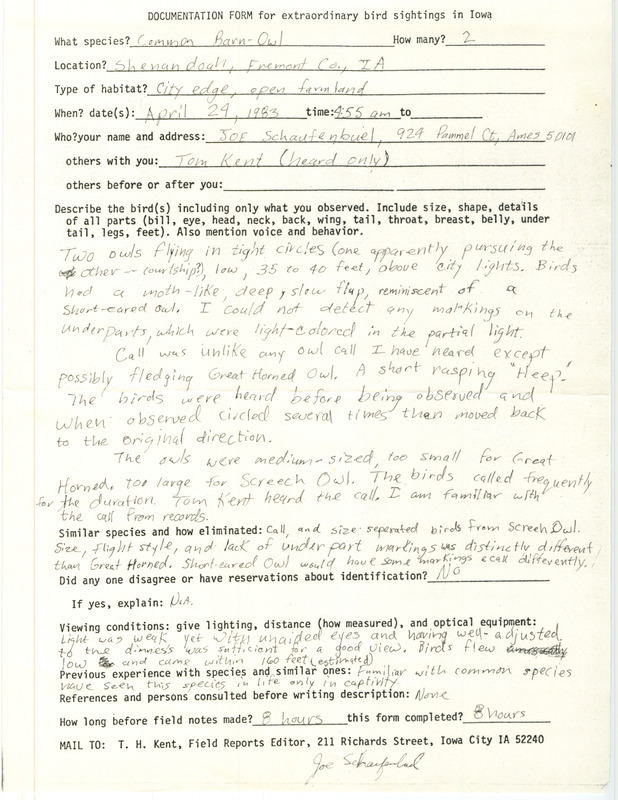 DOCUMENTATION FORM for extraordinary bird sightings in Iowa
What species? Common Barn-Owl How many? 2
Location? Shenandoah, Fremont Co., IA
Type of habitat? City edge, open farmland
When? date(s): April 24, 1983 time: 4:55 am to
Who? your name and address: JOE Schaufenbuel, 929 Pammel Ct, Ames 50101
others with you: Tom Kent (heard only)
others before or after you:
Describe the bird(s) including only what you observed. Include size, shape, details
of all parts (bill, eye, head, neck, back, wing, tail, throat, breast, belly, under
tail, legs, feet). Also mention voice and behavior.
Two owls flying in tight circles (one apparently pursuing the
other - courtship?), low, 35 to 40 feet, above city lights. Birds
had a moth-like, deep, slow flap, reminiscent of a
Short-eared Owl. I could not detect any markings on the
underparts, which were light-colored in the partial light.
Call was unlike any owl call I have heard except
possibly fledging Great Horned Owl. A short rasping "Heep."
The birds were heard before being observed and
when observed circled several times then moved back
to the original direction.
The owls were medium-sized, too small for Great
Horned, too large for Screech Owl. The birds called frequently
for the duration. Tom Kent heard the call. I am familiar with
the call from records.
Similar species and how eliminated: Call, and size seperated birds from Screech Owl.
Size, flight style, and lack of under part markings was distinctly different
than Great Horned. Short-eared Owl would have some markings & call differently.
Did any one disagree or have reservations about identification? NO
If yes, explain: N.A.
Viewing conditions: give lighting, distance (how measured), and optical equipment:
Light was weak yet with unaided eyes and having well-adjusted
to the dimness was sufficient for a good view. Birds flew
low and came within 160 feet (estimated)
Previous experience with species and similar ones: Familiar with common species
Have seen this species in life only in captivity.
References and persons consulted before writing description: None
How long before field notes made? 8 hours this form completed? 8 hours
MAIL TO: T. H. Kent, Field Reports Editor, 211 Richards Street, Iowa City IA 52240
Joe Schaufenbuel